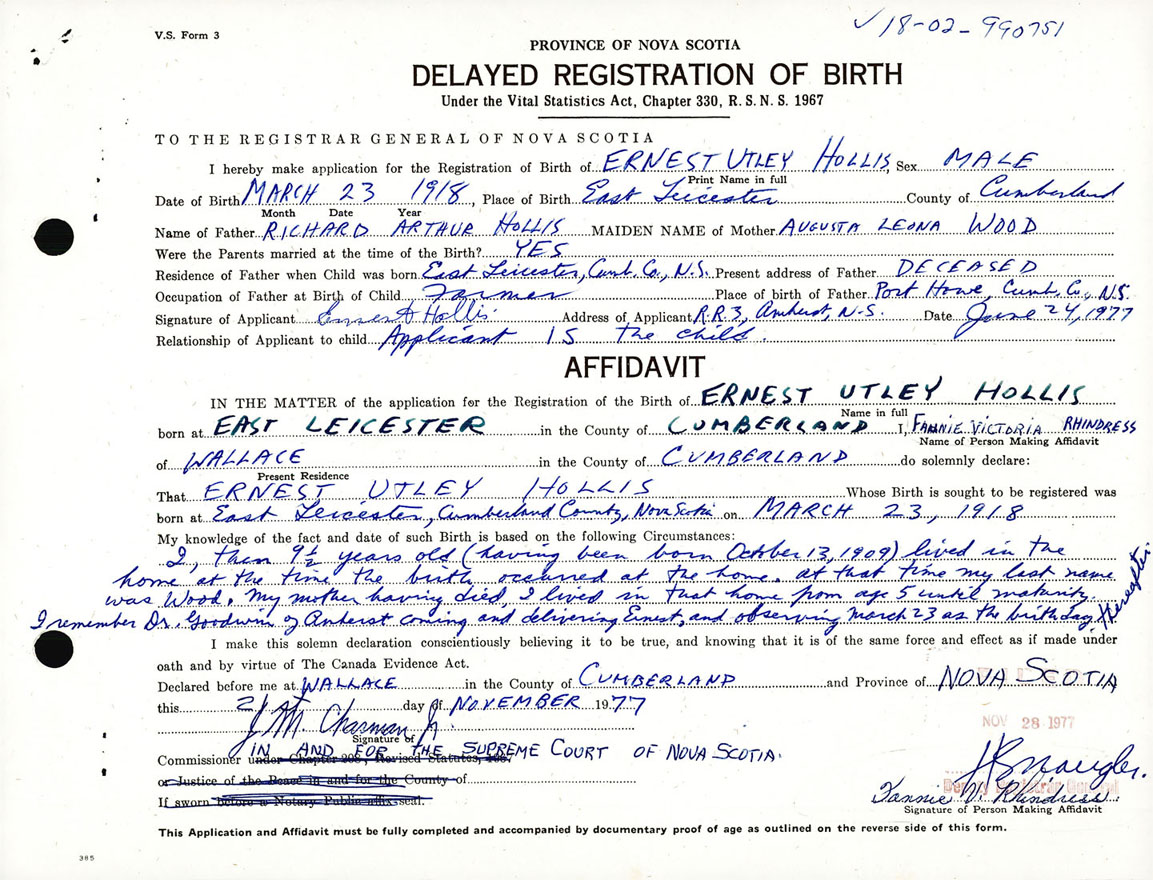 V.S. Form 3
✓ 18-02-990751
PROVINCE OF NOVA SCOTIA
DELAYED REGISTRATION OF BIRTH
Under the Vital Statistics Act, Chapter 330, R. S. N. S. 1967
TO THE REGISTRAR GENERAL OF NOVA SCOTIA
I hereby make application for the Registration of Birth of ERNEST UTLEY HOLLIS, Sex MALE
Print Name in full
Date of Birth MARCH 23 1918, Place of Birth East Leicester County of Cumberland
Month Date Year
Name of Father RICHARD ARTHUR HOLLIS MAIDEN NAME of Mother AUGUSTA LEONA WOOD
Were the Parents married at the time of the Birth? YES
Residence of Father when Child was born East Leicester, Cumb. Co., N.S. Present address of Father DECEASED
Occupation of Father at Birth of Child Farmer Place of birth of Father Port Howe, Cumb. Co., N.S.
Signature of Applicant Ernest Hollis Address of Applicant R.R.3, Amherst, N.S. Date June 24, 1977
Relationship of Applicant to child Applicant IS the child.
AFFIDAVIT
IN THE MATTER of the application for the Registration of the Birth of ERNEST UTLEY HOLLIS
Name in full
born at EAST LEICESTER in the County of CUMBERLAND I, FANNIE VICTORIA RHINDRESS
Name of Person Making Affidavit
of WALLACE in the County of CUMBERLAND do solemnly declare:
Present Residence
That ERNEST UTLEY HOLLIS Whose Birth is sought to be registered was
born at East Leicester, Cumberland County, Nova Scotia on MARCH 23, 1918
My knowledge of the fact and date of such Birth is based on the following Circumstances:
I, then 9½ years old (having been born October 13, 1909) lived in the
home at the time the birth occurred at the home. at that time my last name
was Wood. My mother having died, I lived in that home from age 5 until maturity.
I remember Dr. Goodwin of Amherst coming and delivering Ernest, and observing March 23 as the birthday thereafter
I make this solemn declaration conscientiously believing it to be true, and knowing that it is of the same force and effect as if made under
oath and by virtue of The Canada Evidence Act.
Declared before me at WALLACE in the County of CUMBERLAND and Province of NOVA SCOTIA
this 21 day of NOVEMBER 1977
NOV 28 1977
Signature of
IN AND FOR THE SUPREME COURT OF NOVA SCOTIA.
Commissioner under Chapter 206, Revised Statutes,
or Justice of the Peace in and for the County of
If sworn before a Notary Public affix seal.
Deputy Registrar General
Fannie V. Rhindress
Signature of Person Making Affidavit
This Application and Affidavit must be fully completed and accompanied by documentary proof of age as outlined on the reverse side of this form.
385